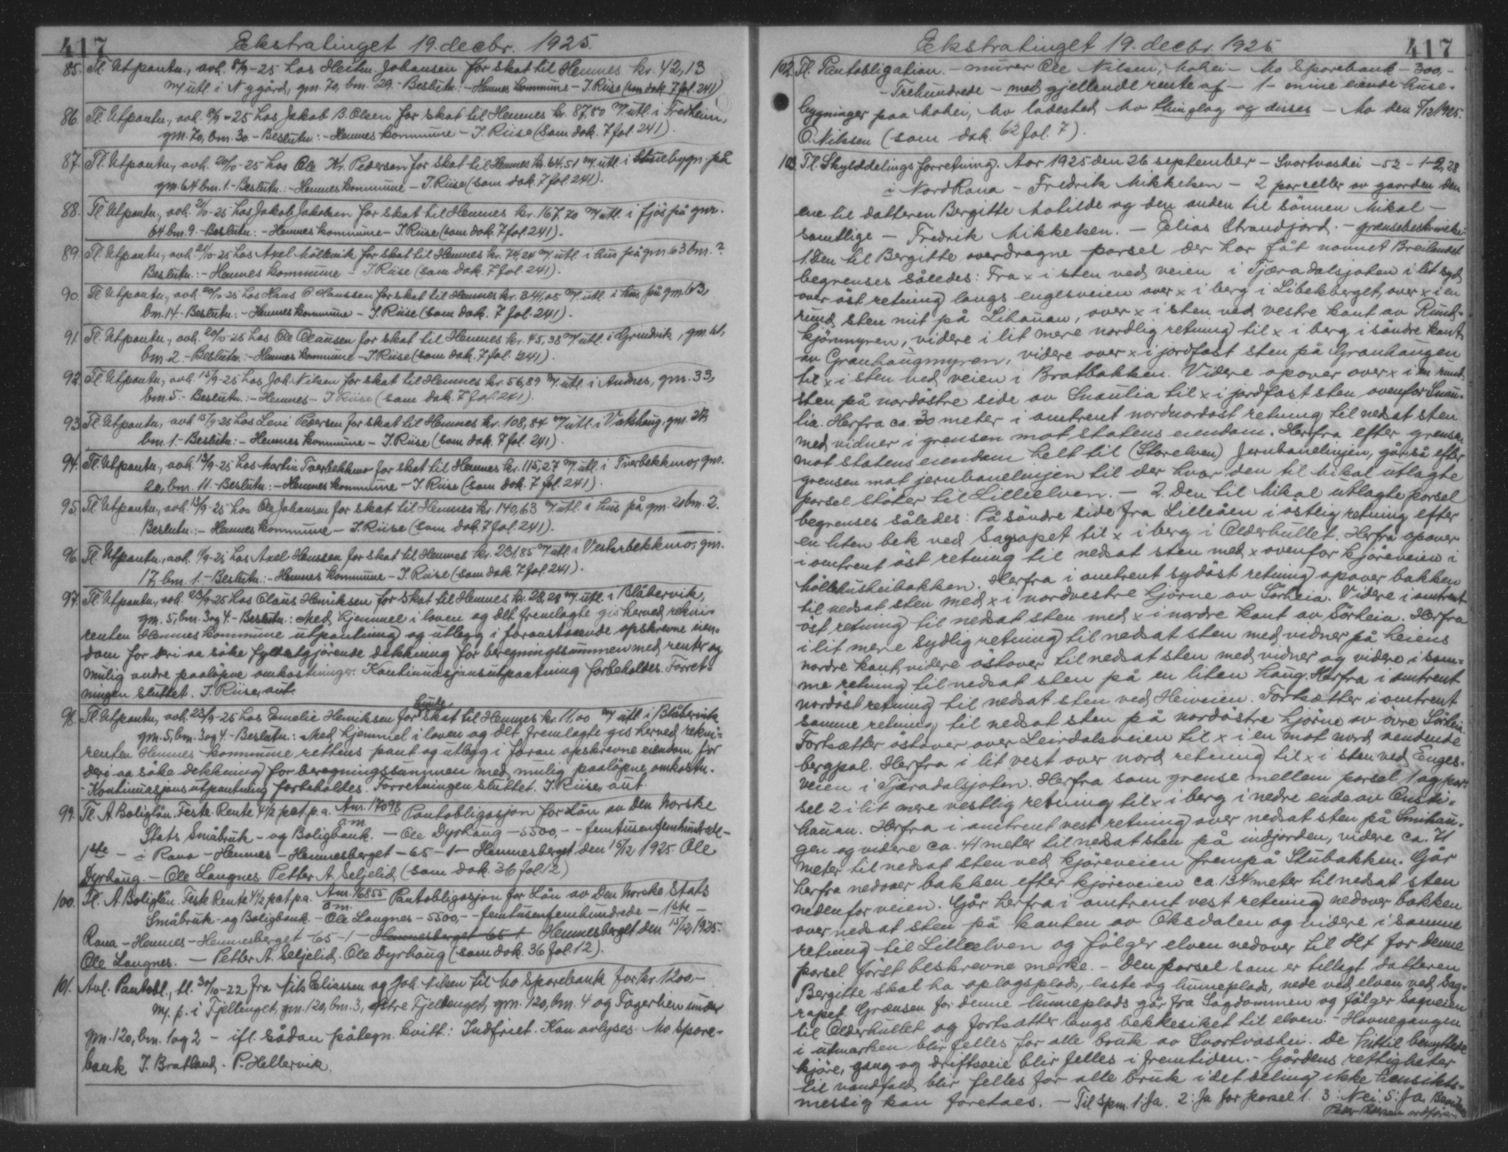 417 Ekstratinget 19. decbr. 1925.
85. Tl. Utpantn., avh. 8/9-25 hos Johansen for skat til Hemnes kr. 42,13
m/ utl. i Nygård, gm. 70, bm. 29 - Beslutn: - Hemnes kommune - I. Riise (som dok. 7 fol. 241)
86. Tl. Utpantn., avh. -25 hos Jakob B. Olsen for skat til Hemnes kr. 87.50 m/ utl. i Fredheim,
gm. 70, bm. 30 - Beslutn: - Hemnes kommune - I. Riise (som dok. 7 fol. 241).
87. Tl. Utpantn., avh. -25 hos Ole Kr. Pedersen for skat til Hemnes kr. 64.51 m/ utl. i på
gm. 64 bm. 1. - Beslutn: - Hemnes kommune - I. Riise (som dok. 7 fol. 241).
88. Tl. Utpantn., avh. -25 hos Jakob Jakobsen for skat til Hemnes kr. 167.20 m/ utl. i fjøs på gnr.
64 bm. 9 - Beslutn: - Hemnes kommune - I. Riise (som dok. 7 fol. 241).
89. Tl. Utpantn., avh. -25 hos Axel for skat til Hemnes kr. m/ utl. i hus på gm 63 bm. ?
Beslutn: - Hemnes kommune - I. Riise (som dok. 7 fol. 241).
90. Tl. Utpantn., avh. -25 hos Hans P. Hanssen for skat til Hemnes kr. 341,05 m/ utl. i hus på gm. 63,
bm. 14 - Beslutn: - Hemnes kommune - I. Riise (som dok. 7 fol. 241).
91. Tl. Utpantn., avh. -25 hos Ole Olaussen for skat til Hemnes kr. 45,38 m/ utl. i Grindvik, gm. 61,
bm. 2 - Beslutn: - Hemnes kommune - I. Riise (som dok. 7 fol. 241).
92. Tl. Utpantn., avh. -25 hos Joh. Nilsen for skat til Hemnes kr. 56,89 m/ utl. i Andnes, gm. 33,
bm. 5 - Beslutn: - Hemnes - I. Riise (som dok. 7 fol. 241).
93. Tl. Utpantn., avh. -25 hos Levi Pedersen for skat til Hemnes kr. 108,84 m/ utl. i gm.
bm. 1 - Beslutn: - Hemnes kommune - I. Riise (som dok. 7 fol. 241).
94. Tl. Utpantn., avh. -25 hos Martin Tverbekkmo for skat til Hemnes kr. 115,27 m/ utl. i Tverbekkmo, gm.
20, bm. 11 - Beslutn: - Hemnes kommune - I. Riise (som dok. 7 fol. 241).
95. Tl. Utpantn., avh. -25 hos Ole Johansen for skat til Hemnes kr. 140,63 m/ utl. i hus på gm. 20 bm. 2.
Beslutn: - Hemnes kommune - I. Riise (som dok. 7 fol. 241).
96. Tl. Utpantn., avh. -25 hos Axel Hanssen for skat til Hemnes kr. m/ utl. i Vesterbekkmo, gm.
17, bm. 1. - Beslutn: - Hemnes kommune - I. Riise (som dok. 7 fol. 241).
97. Tl. Utpantn., avh. -25 hos Claus Henriksen for skat til Hemnes kr. m/ utl. i Blåbervik,
gm. 5, bm. 3 og 4 - Beslutn: - Med hjemmel i loven og det fremlagte gis herved rekvi-
renten Hemnes kommune utpantning og utlegg i foranstaaende opskrevne eien-
dom for deri aa søke fyldestgjørende dekkning for beregningssummen med renter og
mulig andre paaløpne omkostninger. Kontinuasjonsutpantning forbeholdes. Forret-
ningen sluttet. I. Riise, aut.
98. Tl. Utpantn., avh. 23/9-25 hos Emelie Henriksen for skat til Hemnes kr. 11,00 m/ utl. i Blåbervik
gm. 5, bm. 3 og 4 - Beslutn: - Med hjemmel i loven og det fremlagte gis herved rekvi-
renten Hemnes kommune rettens pant og utlegg i foran opskrevne eiendom for
deri aa søke dekkning for beregningssummen med mulig paaløpne omkostn.
- Kontinuasjonsutpantning forbeholdes. Forretningen sluttet. I. Riise aut.
99. Tl. A Boliglån. Faste Rente 4½ pct. p.a. Pantobligasjon for Lån av Den Norske
Stats Småbruk- og Boligbank. - Ole Dyrhaug - 5500,- - femtusenfemhundrede -
1ste - i Rana - Hemnes - Hemnesberget - 65 - 1 - Hemnesberget den 15/12 1925. Ole
Dyrhaug. - Ole Langnes. Petter A. Seljelid (som dok. 36 fol. 12)
100. Tl. A Boliglån Faste Rente 4½ pct p.a. Pantobligasjon for Lån av Den Norske Stats
Småbruk- og Boligbank - Ole Langnes - 5500,- - femtusenfemhundrede - 1ste -
Rana - Hemnes - Hemnesberget 65 - 1 - Hemnesberget den 15/12 1925.
Ole Langnes. - Petter A. Seljelid. Ole Dyrhaug (som dok. 36 fol. 12).
101. Avl. Pantobl., tl. -22 fra Nils Eliassen og Joh. Nilsen til Mo Sparebank for kr. 1200 -
m/ p. i Fjellenget, gm. 120, bm. 3, Fjellenget, gm. 120, bm. 4 og under
gm. 120, bm. 1 og 2 - ifl. sådan påtegn. kvitt: Indfriet. Kan avlyses - Mo Spare-
bank I. Bratland. P. Hellervik.
Ekstratinget 19. decbr. 1925 417
102. Tl. Pantobligation. - murer Ole Nilsen, Mohei - Mo Sparebank - 300,-
- Trehundrede - med gjeldende rente af - 1 - mine eiende huse-
bygninger paa Mohei, Mo ladested, Mo thinglag og disses - Mo den 5/12 1925.
O. Nilsen (som dok. 62 fol. 7).
103. Tl. Skylddelingsforretning. Aar 1925 den 26 september - Svortvashei - 52 - 1 - 2,28
i Nordrana - Fredrik Mikkelsen - 2 parceller av gaarden den
ene til datteren Bergitte Matilde og den anden til sönnen Mikal -
samtlige - Fredrik Mikkelsen. - Elias Strandjord. - grænsebeskrivelse:
1. Den til Bergitte overdragne parsel der har fåt navnet Breilandet
begrenses således: Fra x i sten ved veien i Tjæradalsjoten i lit syd
over öst retning langs engesveien over x i berg i Libekberget, over x i en
rund sten mit på Lihauen, over x i sten ved vestre kant av Rund-
kjönmyren, videre i lit mere nordlig retning til x i berg i söndre kant
av Granhaugmyren, videre over x i jordfast sten på Granhaugen
til x i sten ved veien i Bratbakken. Videre opover over x i en rund
sten på nordöstre side av Snaulia til x i jordfast sten ovenfor Snau-
lia. Herfra ca. 30 meter i omtrent nordnordöst retning til nedsat sten
med vidner i grensen mot statens eiendom. Herfra efter grensen
mot statens eiendom helt til (Storelven) Jernbanelinjen, går så efter
grensen mot jernbanelinjen til der hvor den til Mikal utlagte
parsel stöter til Lillelven. - 2. Den til Mikal utlagte parsel
begrenses således: På söndre side fra Lilleåen i östlig retning efter
en liten bek ved Sagrapet til x i berg i Olderhullet. Herfra opover
i omtrent öst retning til nedsat sten med x ovenfor kjöreveien i
bakken. Herfra i omtrent sydöst retning opover bakken
til nedsat sten med x i nordvestre hjörne av Sörheia. Videre i omtrent
öst retning til nedsat sten med x i nordre kant av Sörheia. Herfra
i lit mere sydlig retning til nedsat sten med vidner på heiens
nordre kant, videre östover til nedsat sten med vidner og videre i sam-
me retning til nedsat sten på en liten haug. Herfra i omtrent
nordöst retning til nedsat sten ved Heiveien. Fortsetter i omtrent
samme retning til nedsat sten på nordöstre hjörne av övre Sörheia.
Fortsætter östover over Leirdalsveien til x i en mot nord vendende
bergpal. Herfra i lit vest over nord retning til x i sten ved Enges-
veien i Tjæradalsjoten. Herfra som grense mellem parsel 1 og par-
sel 2 i lit mere vestlig retning til x i berg i nedre ende av
hauan. Herfra i omtrent vest retning over nedsat sten på Smihau-
gen og videre ca. 41 meter til nedsat sten på indjorden, videre ca. 71
meter til nedsat sten ved kjöreveien frempå Stubakken. Går
herfra nedover bakken efter kjöreveien ca 134 meter til nedsat sten
nedenfor veien. Går herfra i omtrent vest retning nedover bakken
over nedsat sten på kanten av Oksdalen og videre i samme
retning til Lilleelven og fölger elven nedover til det for denne
parsel först beskrevne merke. - Den parsel som er tillagt datteren
Bergitte skal ha oplagsplads, laste og lunneplads, nede ved elven ved Sag-
rapet. Grænsen for denne lunneplads går fra Sagdammen og fölger Sagveien
til Olderhullet og fortsætter langs bekkesiket til elven. - Havnegangen
i utmarken blir felles for alle bruk av Svortvashei. De hittil benyttede
kjöre, gang og driftsveie blir felles i fremtiden. - Gårdens rettigheter
til vandfald blir felles for alle bruk idet deling ikke hensikts-
messig kan foretaes. - Til Spm. 1: Ja. 2: Ja for parsel 1. 3: Nei. 5: Ja.